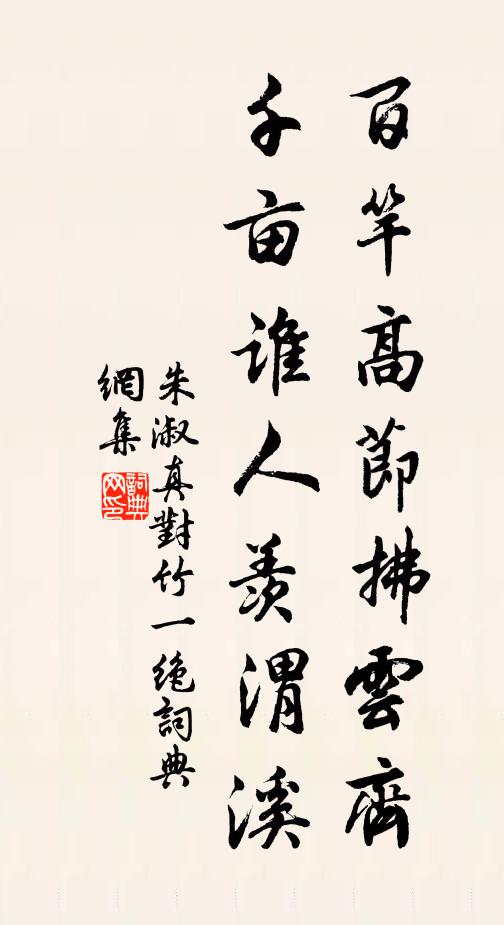 百竿高節拂雲齊
千亩谁人羡渭溪
朱淑真對竹一绝詞典
網集
詞典
网印